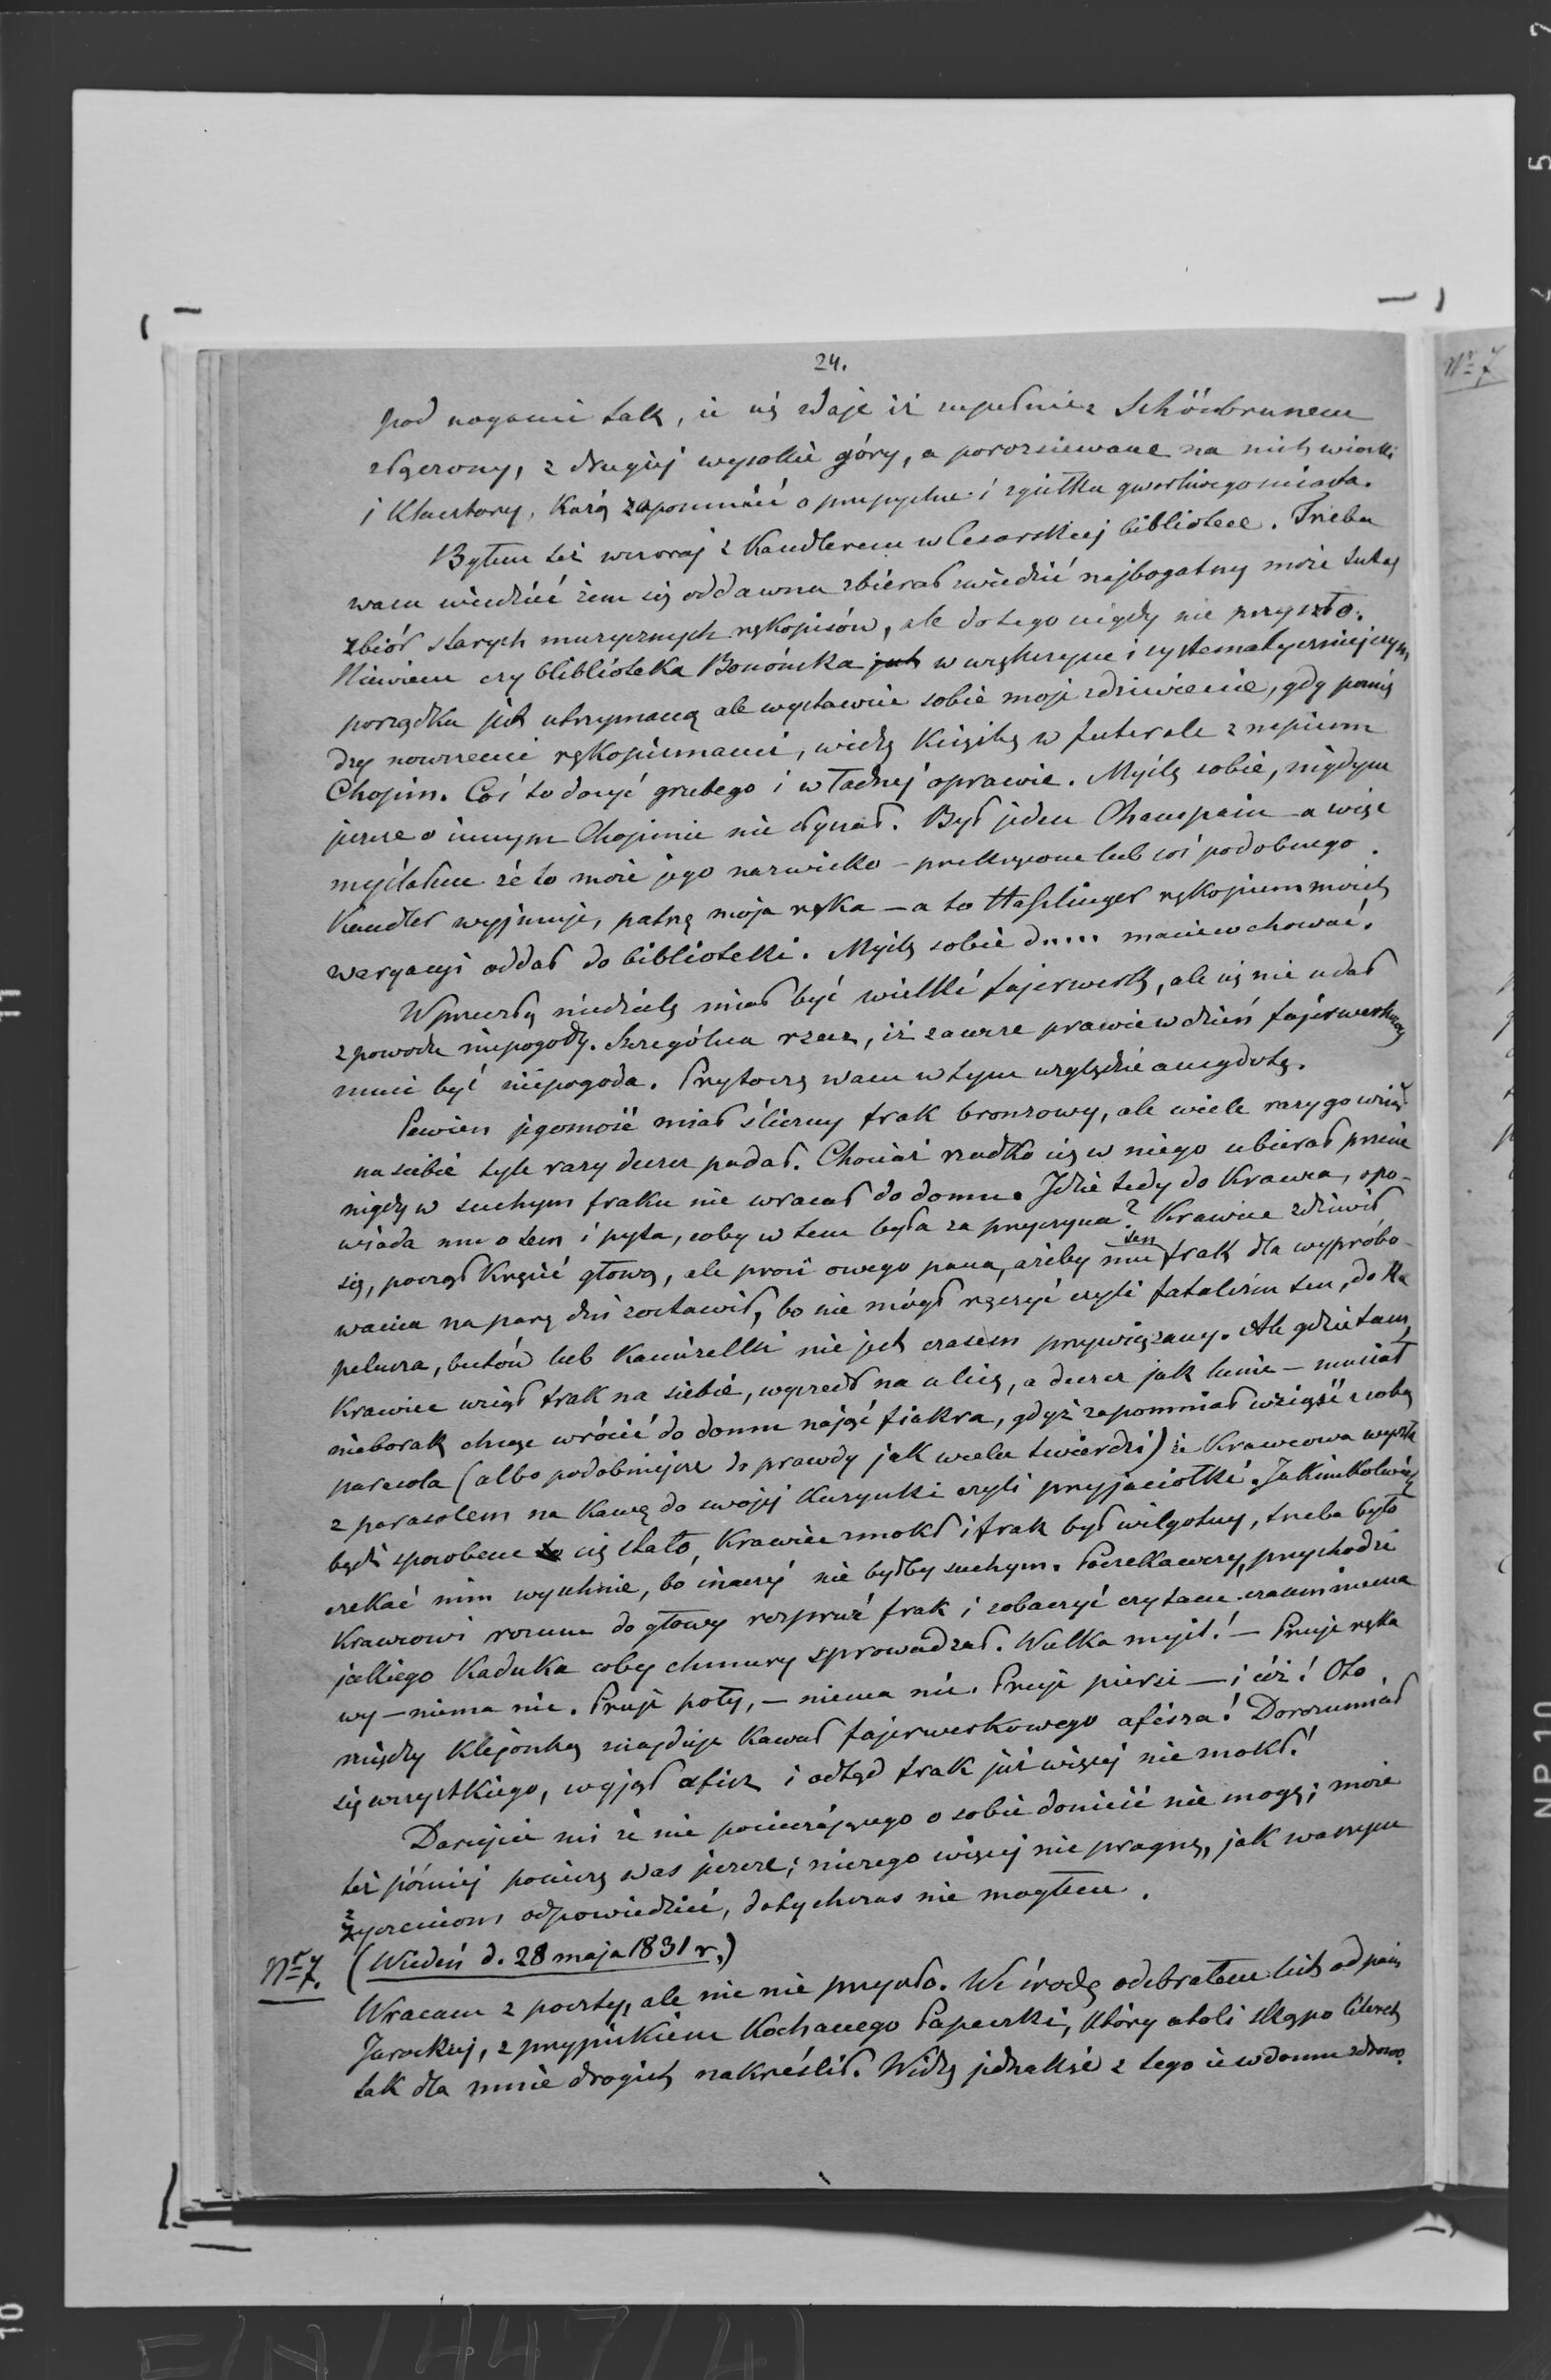 24.
pod nogami tak, iż się zdaje iż zupełnie z Schönbrunem
złączony, z drugiej wysokie góry, a porozsiewane na nich wioski
i klasztory, każą zapomnieć o przepychu i zgiełku gwarliwego miasta.
Byłem też wczoraj z Kandlerem w Cesarskiej bibliotece. Trzeba
wam wiedzieć żem się oddawna zbierał zwiedzić najbogatszy może tutaj
zbiór starych muzycznych rękopisów, ale do tego nigdy nie przyszło.
Niewiem czy biblioteka Bonońska jest w większym i systematyczniejszym
porządku jest utrzymaną ale wystawcie sobie moje zdziwienie, gdy pomię
dzy nowszemi rękopismami, widzę książkę w futerale z napisem
Chopin. Coś to dosyć grubego i w ładnej oprawie. Myślę sobie, nigdym
jeszcze o innym Chopinie nie słyszał. Był jeden Champein – a więc
myślałem że to może jego nazwisko – przekręcone lub coś podobnego.
Kandler wyjmuje, patrzę moja ręka – a to Haslinger rękopism moich
waryacyi oddał do biblioteki. Myślę sobie d..... macie co chować.
W przeszłą niedzielę miał być wielki fajerwerk, ale się nie udał
z powodu niepogody. Szczególna rzecz, iż zawsze prawie w dzień fajerwerkowy
musi być niepogoda. Przytoczę wam w tym względzie anegdotę.
Pewien jegomość miał śliczny frak bronzowy, ale wiele razy go wziął
na siebie tyle razy deszcz padał. Chociaż rzadko się w niego ubierał przecie
nigdy w suchym fraku nie wracał do domu. Idzie tedy do krawca, opo-
wiada mu o tem i pyta, coby w tem była za przyczyna? Krawiec zdziwił
się, począł kręcić głową, ale prosi owego pana, ażeby mu ten frak dla wypróbo-
wania na parę dni zostawił, bo nie mógł ręczyć czyli fatalizm ten, do ka
pelusza, butów lub kamizelki nie jest czasem przywiązany. Ale gdzie tam,
krawiec wziął frak na siebie, wyszedł na ulicę, a deszcz jak lunie – musiał
nieborak chcąc wrócić do domu nająć fiakra, gdyż zapomniał wziąść z sobą
parasola (albo podobniejsze do prawdy jak wielu twierdzi) że krawcowa wyszła
z parasolem na kawę do swojej kuzynki czyli przyjaciołki. Jakimkolwiek
bądź sposobem to się stało, krawiec zmokł i frak był wilgotny, trzeba było
czekać nim wyschnie, bo inaczej nie byłby suchym. Poczekawszy, przychodzi
krawcowi rozum do głowy rozpruć frak i zobaczyć czy tam czasem niema
jakiego kaduka coby chmury sprowadzał. Wielka myśl! – Pruje ręka
wy – niema nic. Pruje poły, – niema nic. Pruje piersi – i cóż! Oto
między klejonką znajduje kawał fajerwerkowego afisza! Dorozumiał
się wszystkiego, wyjął afisz i odtąd frak już więcej nie mokł.!
Darujcie mi że nic pocieszającego o sobie donieść nie mogę; może
też później pocieszę was jeszcze; niczego więcej nie pragnę, jak waszym
życzeniom odpowiedzieć, dotychczas nie mogłem.
Nr 7. (Wiedeń d. 28 maja 1831 r.)
Wracam z poczty, ale nic nie przyszło. We środę odebrałem list od pani
Jarockiej, z przypiskiem kochanego Papeczki, który atoli skąpo liter
tak dla mnie drogich nakreślił. Widzę jednakże z tego iż w domu zdrowo.
Nr 7